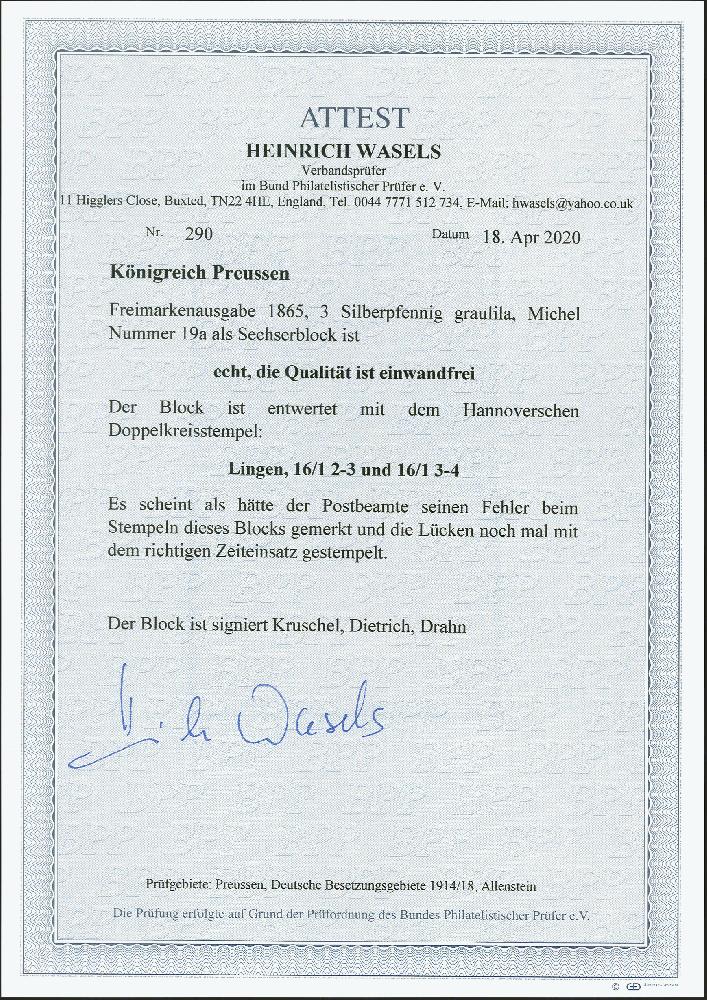 ATTEST
HEINRICH WASELS
Verbandsprüfer
im Bund Philatelistischer Prüfer e. V.
11 Higglers Close, Buxted, TN22 4HE, England, Tel. 0044 7771 512 734, E-Mail: hwasels@yahoo.co.uk
Nr. 290 Datum 18. Apr 2020
Königreich Preussen
Freimarkenausgabe 1865, 3 Silberpfennig graulila, Michel
Nummer 19a als Sechserblock ist
echt, die Qualität ist einwandfrei
Der Block ist entwertet mit dem Hannoverschen
Doppelkreisstempel:
Lingen, 16/1 2-3 und 16/1 3-4
Es scheint als hätte der Postbeamte seinen Fehler beim
Stempeln dieses Blocks gemerkt und die Lücken noch mal mit
dem richtigen Zeiteinsatz gestempelt.
Der Block ist signiert Kruschel, Dietrich, Drahn
Wasels
Prüfgebiete: Preussen, Deutsche Besetzungsgebiete 1914/18, Allenstein
Die Prüfung erfolgte auf Grund der Prüfordnung des Bundes Philatelistischer Prüfer e.V.
©